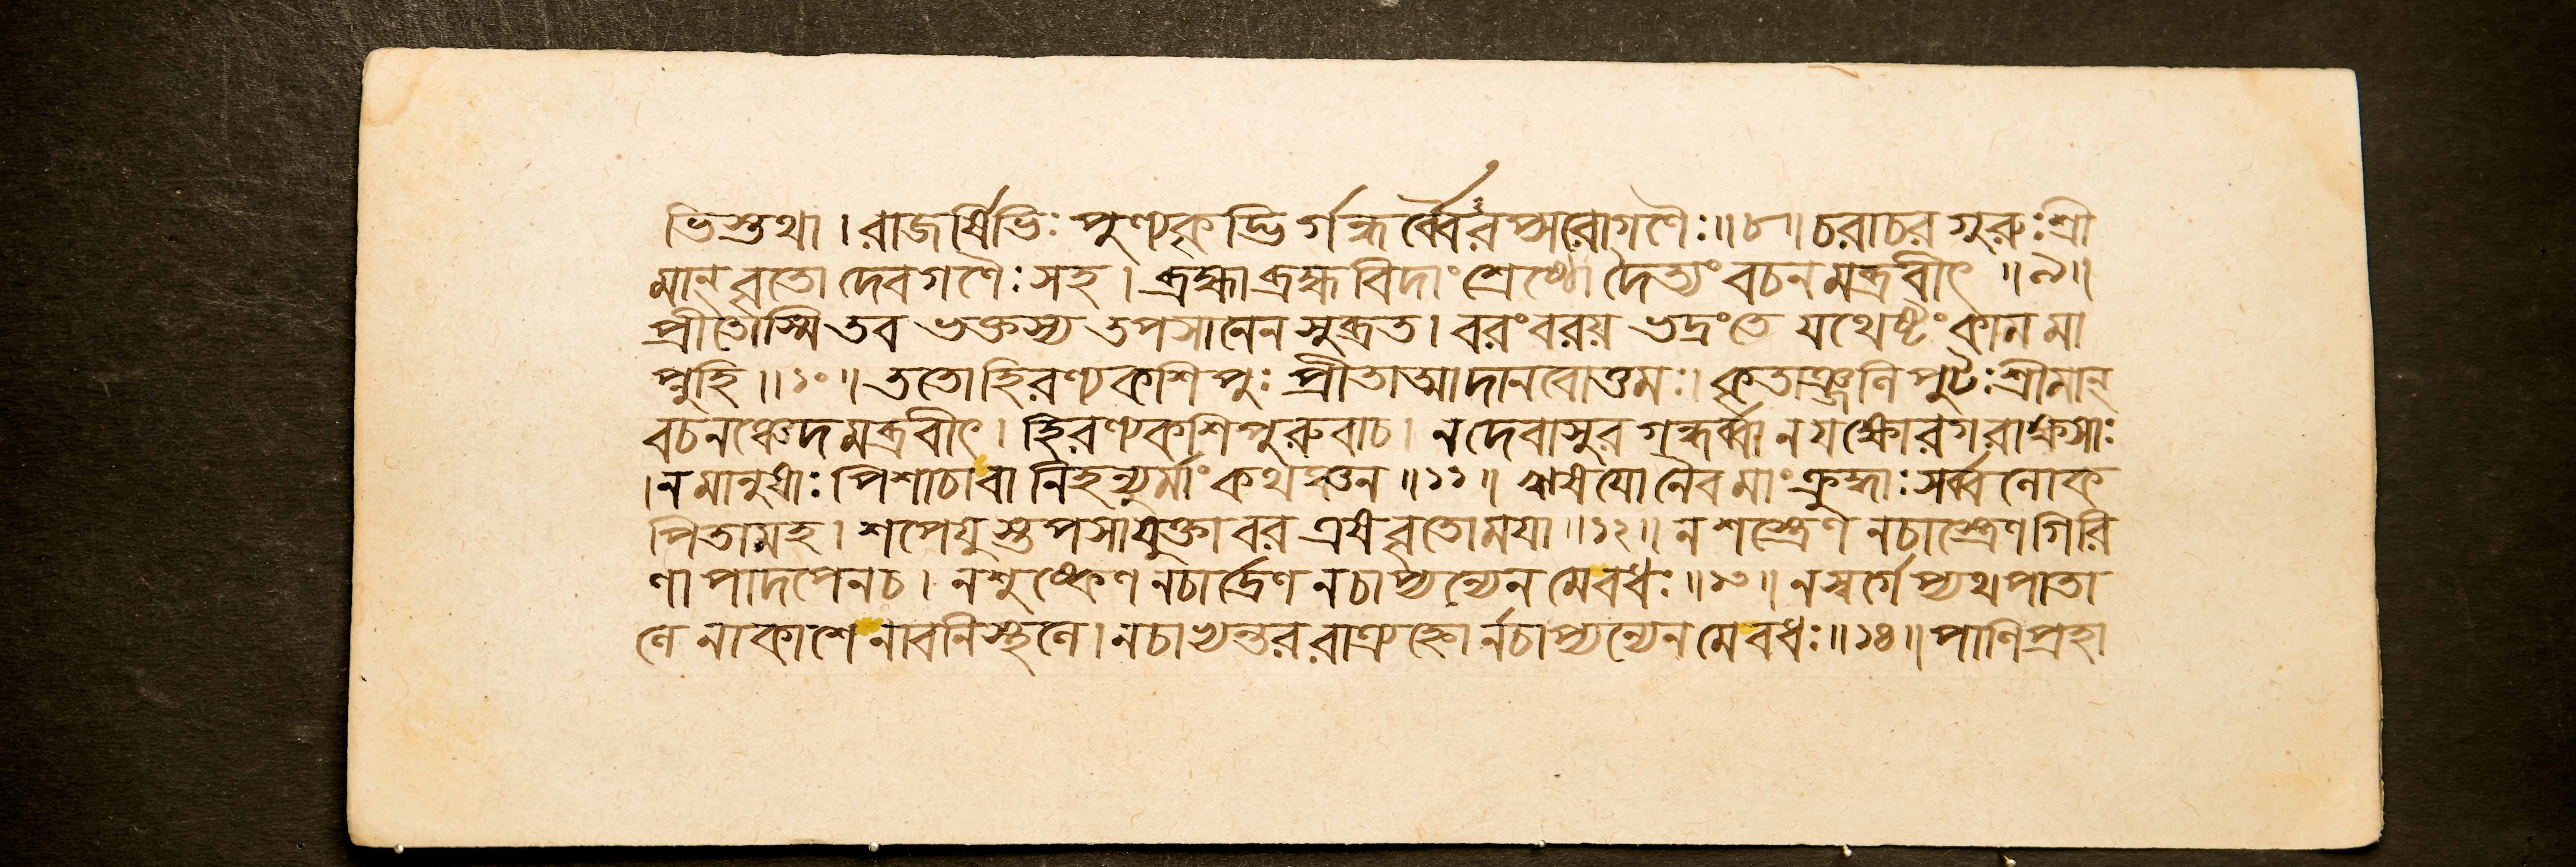 ভিস্তথা । রাজর্ষিভিঃ পুণ্যকৃদ্ভির্গন্ধর্ব্বৈরপ্সরোগণৈঃ ॥ ৮ ॥ চরাচর গুরুঃ শ্রী
মান্ বৃতো দেবগণৈঃ সহ । ব্রহ্মা ব্রহ্মবিদাং শ্রেষ্ঠো দৈত্যং বচনমব্রবীৎ ॥ ৯ ॥
প্রীতোস্মি তব ভক্তস্য তপসানেন সুব্রত । বরং বরয় ভদ্রং তে যথেষ্টং কাম মা
প্নুহি ॥ ১০ ॥ ততো হিরণ্যকশিপুঃ প্রীতাত্মা দানবোত্তমঃ । কৃতাঞ্জলি পুটঃ শ্রীমান্
বচনঞ্চেদমব্রবীৎ । হিরণ্যকশিপুরুবাচ । ন দেবাসুর গন্ধর্ব্বা ন যক্ষোরগরাক্ষসাঃ
। ন মানুষাঃ পিশাচা বা নিহন্যুর্মাং কথঞ্চন ॥ ১১ ॥ ঋষয়ো নৈব মাং ক্রুদ্ধাঃ সর্ব্বলোক
পিতামহ । শপেযুস্তপসা যুক্তা বর এষ বৃতো ময়া ॥ ১২ ॥ ন শস্ত্রেণ ন চাস্ত্রেণ গিরি
ণা পাদপেন চ । ন শুষ্কেণ ন চার্দ্রেণ ন চাপ্যন্যেন মে বধঃ ॥ ১৩ ॥ ন স্বর্গেপ্যথ পাতা
লে নাকাশে নাবনিস্থলে । ন চাভ্যন্তর রাত্র্যহ্নোর্ন চাপ্যন্যেন মে বধঃ ॥ ১৪ ॥ পাণিপ্রহা